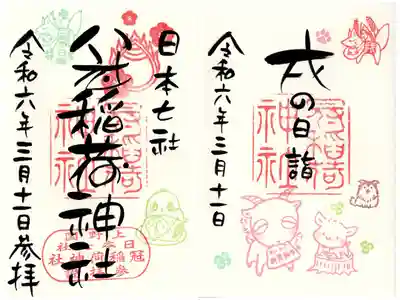 戌の日詣
冠稲荷
神社
令和六年三月十一日
日本七社
冠稲荷神社
冠稲荷
神社
令和六年三月十一日参拝